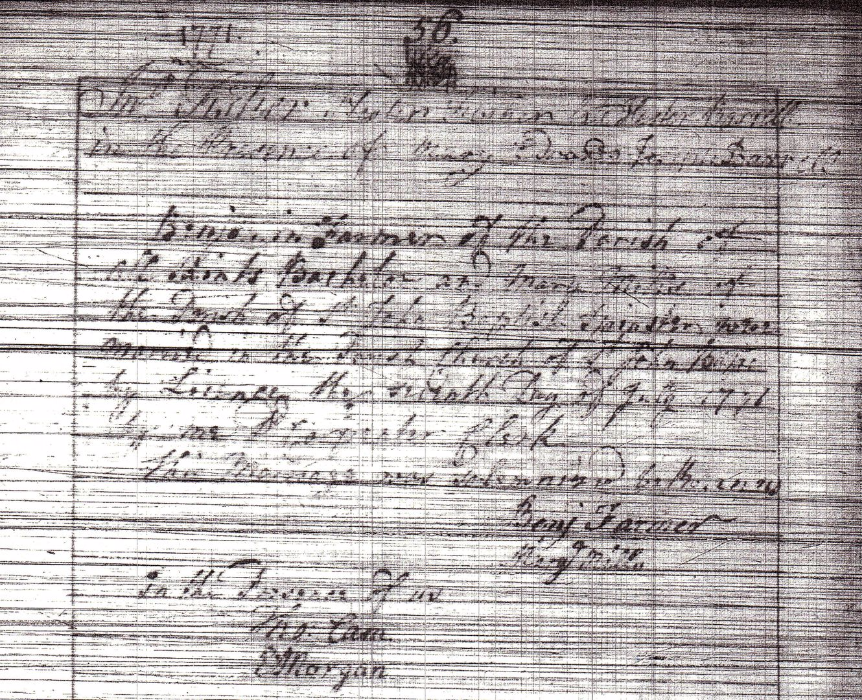 1771 56
Jno Fisher between Hester Burrell
in the Presence of Mary Edwards Barrell
Benjamin Farmer of the Parish of
all Saints Bachelor and Mary of
the Parish of St John Baptist Spinster were
married in the Parish Church of St John Bapt
by Licence this seventh Day of July 1771
by me Clerk
This Marriage was solemnized between us
Benj Farmer
Mary Mills
In the Presence of us
Tho: Cam
E Morgan